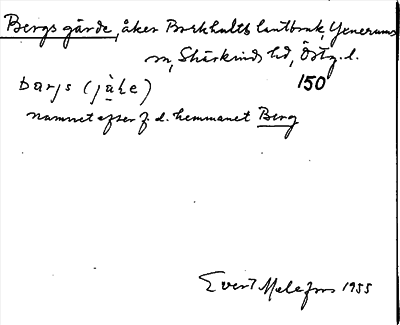 Bergs gärde, åker Borkhults lantbruk, Yxnerums
sn, Skärkinds hd, Östg. l.
150
namnet efter f. d. hemmanet Berg
Evert Melefors 1955